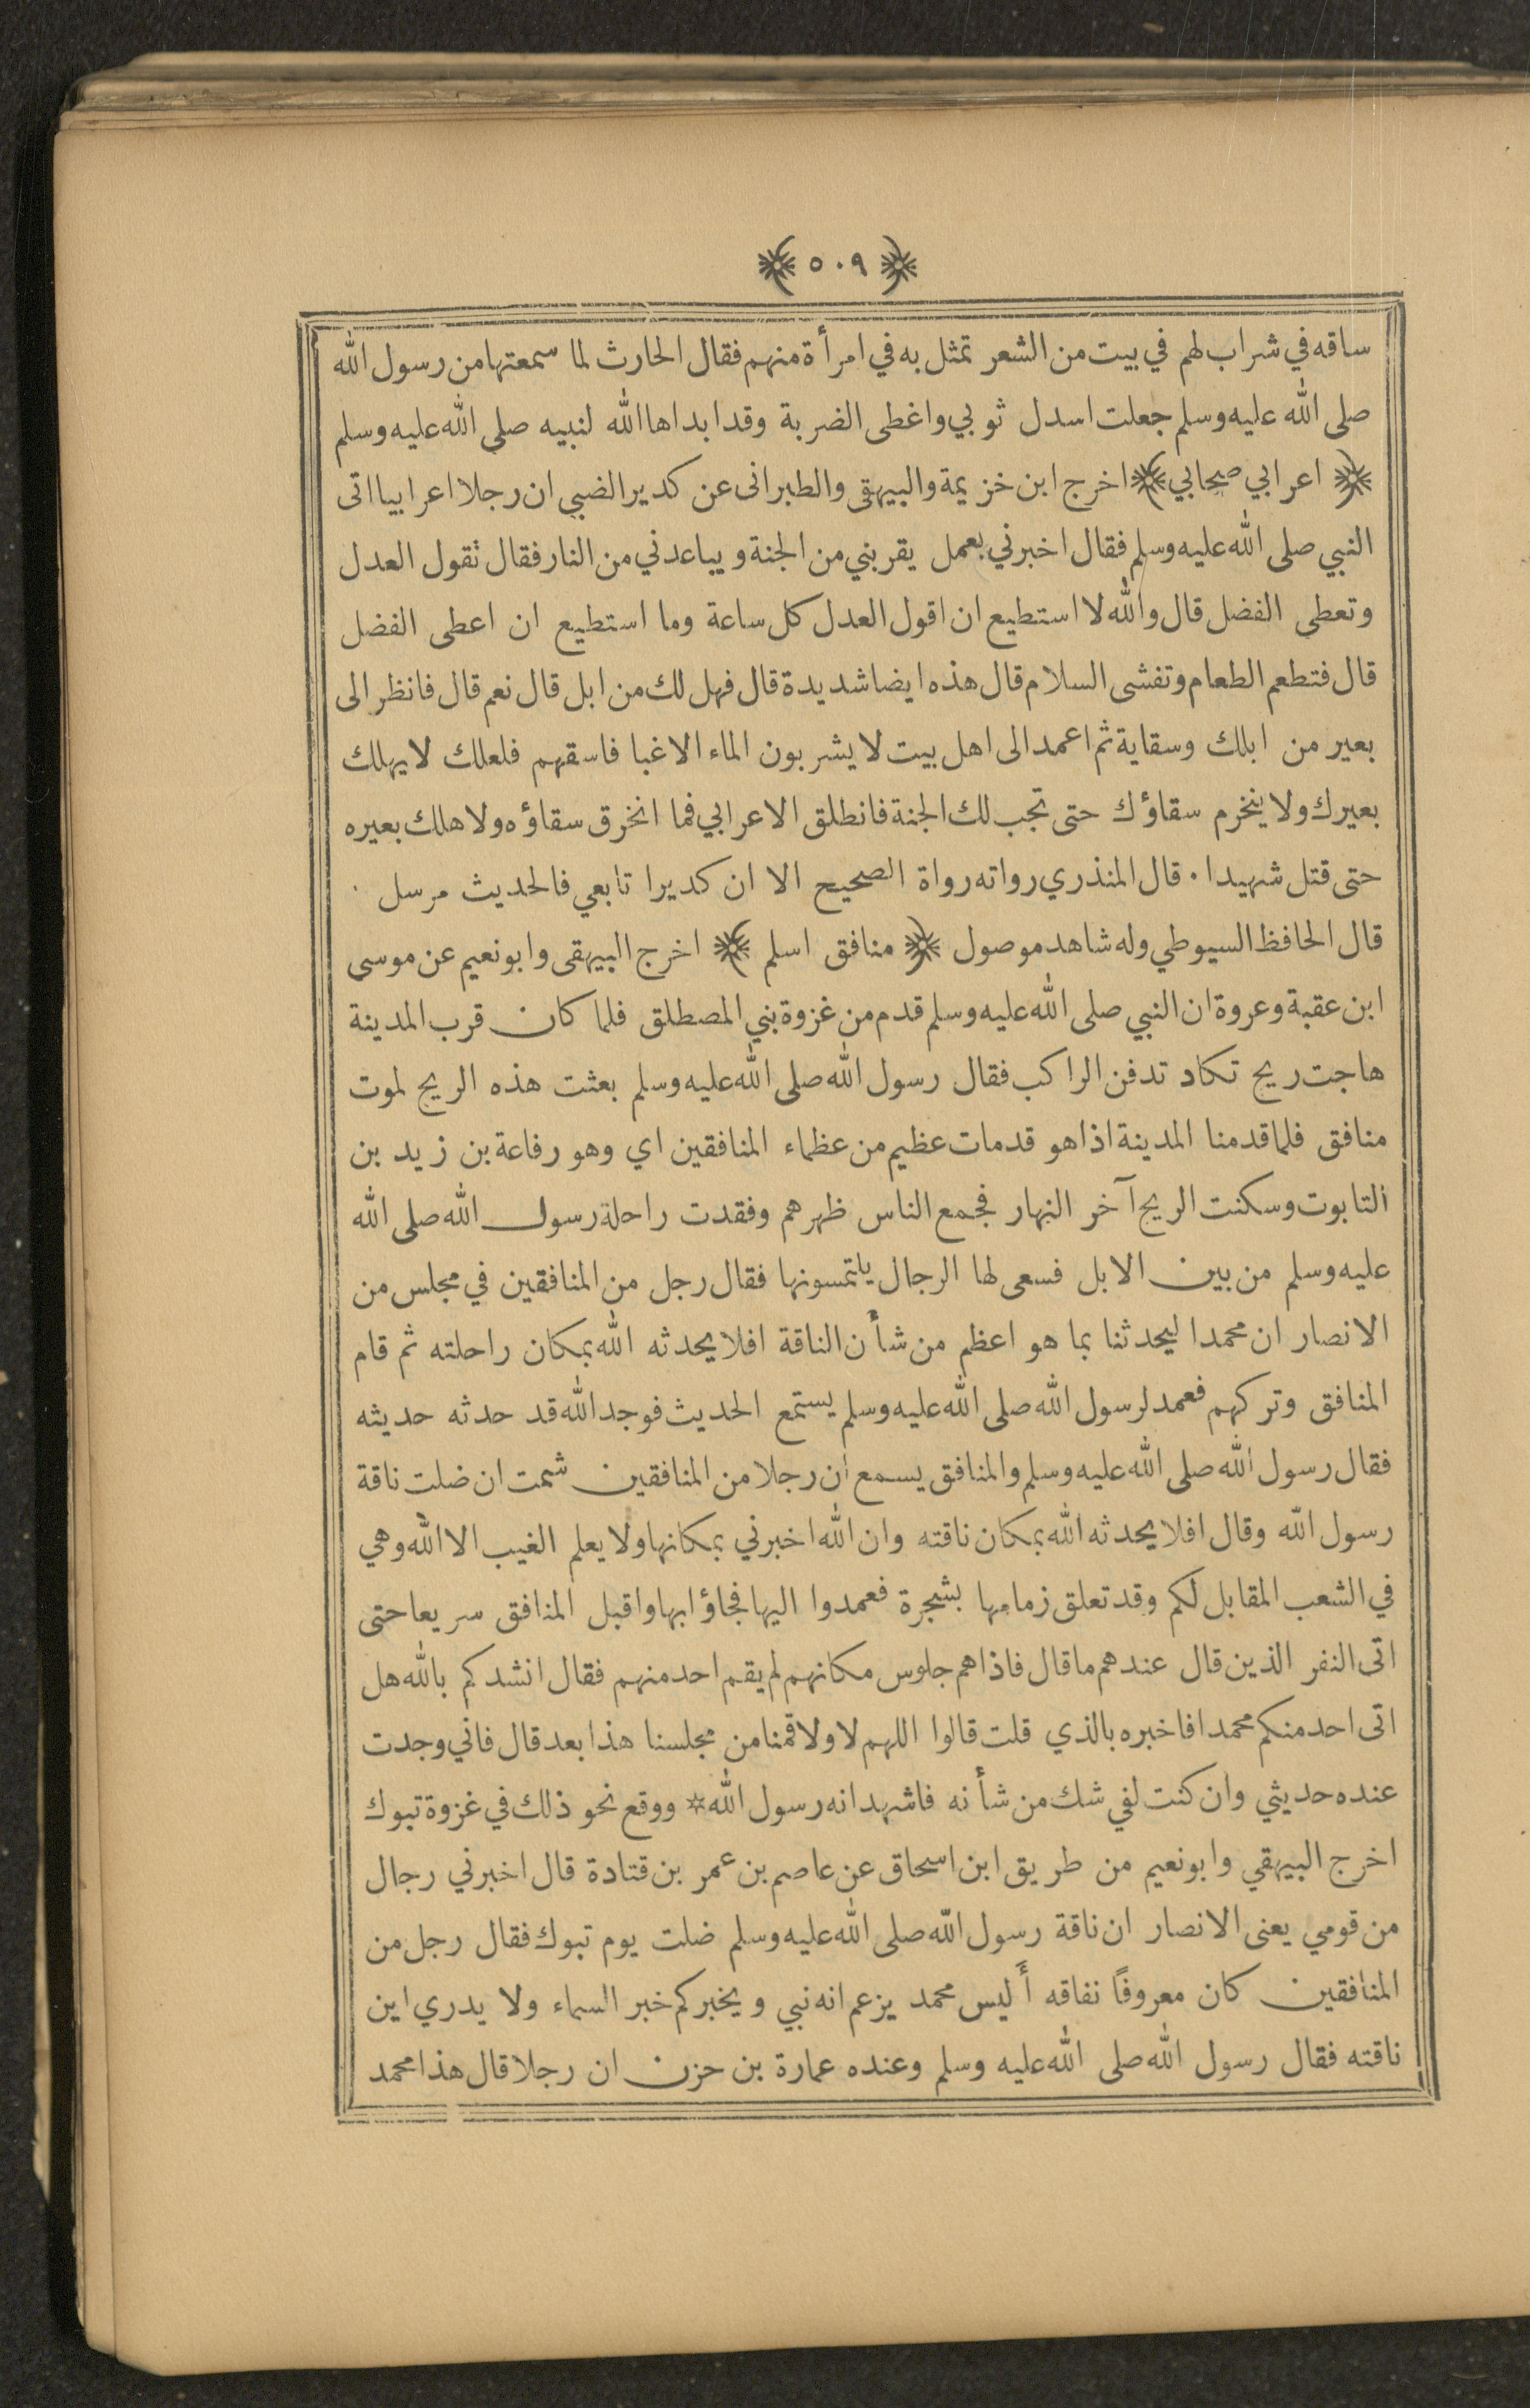 ﴿ ٥٠٩ ﴾
ساقه في شراب لهم في بيت من الشعر تمثل به في امرأة منهم فقال الحارث لما سمعتها من رسول الله
صلى الله عليه وسلم جعلت اسدل ثوبي واغطى الضربة وقد ابداها الله لنبيه صلى الله عليه وسلم
﴿ اعرابي صحابي ﴾ اخرج ابن خزيمة والبيهقى والطبرانى عن كدير الضبي ان رجلا اعرابيا اتى
النبي صلى الله عليه وسلم فقال اخبرني بعمل يقربني من الجنة و يباعدني من النار فقال تقول العدل
وتعطى الفضل قال والله لا استطيع ان اقول العدل كل ساعة وما استطيع ان اعطى الفضل
قال فتطعم الطعام وتفشى السلام قال هذه ايضا شديدة قال فهل لك من ابل قال نعم قال فانظر الى
بعير من ابلك وسقاية ثم اعمد الى اهل بيت لا يشربون الماء الا غبا فاسقهم فلعلك لا يهلك
بعيرك ولا ينخرم سقاؤك حتى تجب لك الجنة فانطلق الاعرابي فما انخرق سقاؤه ولا هلك بعيره
حتى قتل شهيدا . قال المنذري رواته رواة الصحيح الا ان كديرا تابعي فالحديث مرسل .
قال الحافظ السيوطي وله شاهد موصول ﴿ منافق اسلم ﴾ اخرج البيهقى وابونعيم عن موسى
ابن عقبة وعروة ان النبي صلى الله عليه وسلم قدم من غزوة بني المصطلق فلما كان قرب المدينة
هاجت ريح تكاد تدفن الراكب فقال رسول الله صلى الله عليه وسلم بعثت هذه الريح لموت
منافق فلما قدمنا المدينة اذا هو قد مات عظيم من عظماء المنافقين اي وهو رفاعة بن زيد بن
التابوت وسكنت الريح آخر النهار فجمع الناس ظهرهم وفقدت راحلة رسول الله صلى الله
عليه وسلم من بين الابل فسعى لها الرجال يلتمسونها فقال رجل من المنافقين في مجلس من
الانصار ان محمدا ليحدثنا بما هو اعظم من شأن الناقة افلا يحدثه الله بمكان راحلته ثم قام
المنافق وتركهم فعمد لرسول الله صلى الله عليه وسلم يستمع الحديث فوجد الله قد حدثه حديثه
فقال رسول الله صلى الله عليه وسلم والمنافق يسمع ان رجلا من المنافقين شمت ان ضلت ناقة
رسول الله وقال افلا يحدثه الله بمكان ناقته وان الله اخبرني بمكانها ولا يعلم الغيب الا الله وهي
في الشعب المقابل لكم وقد تعلق زمامها بشجرة فعمدوا اليها فجاؤا بها واقبل المنافق سريعا حتى
اتى النفر الذين قال عندهم ما قال فاذاهم جلوس مكانهم لم يقم احد منهم فقال انشدكم بالله هل
اتى احد منكم محمدا فاخبره بالذي قلت قالوا اللهم لا ولا قمنا من مجلسنا هذا بعد قال فاني وجدت
عنده حديثي وان كنت لفي شك من شأنه فاشهد انه رسول الله * ووقع نحو ذلك في غزوة تبوك
اخرج البيهقي وابونعيم من طريق ابن اسحاق عن عاصم بن عمر بن قتادة قال اخبرني رجال
من قومي يعنى الانصار ان ناقة رسول الله صلى الله عليه وسلم ضلت يوم تبوك فقال رجل من
المنافقين كان معروفاً نفاقه أليس محمد يزعم انه نبي ويخبركم خبر السماء ولا يدري اين
ناقته فقال رسول الله صلى الله عليه وسلم وعنده عمارة بن حزن ان رجلا قال هذا محمد